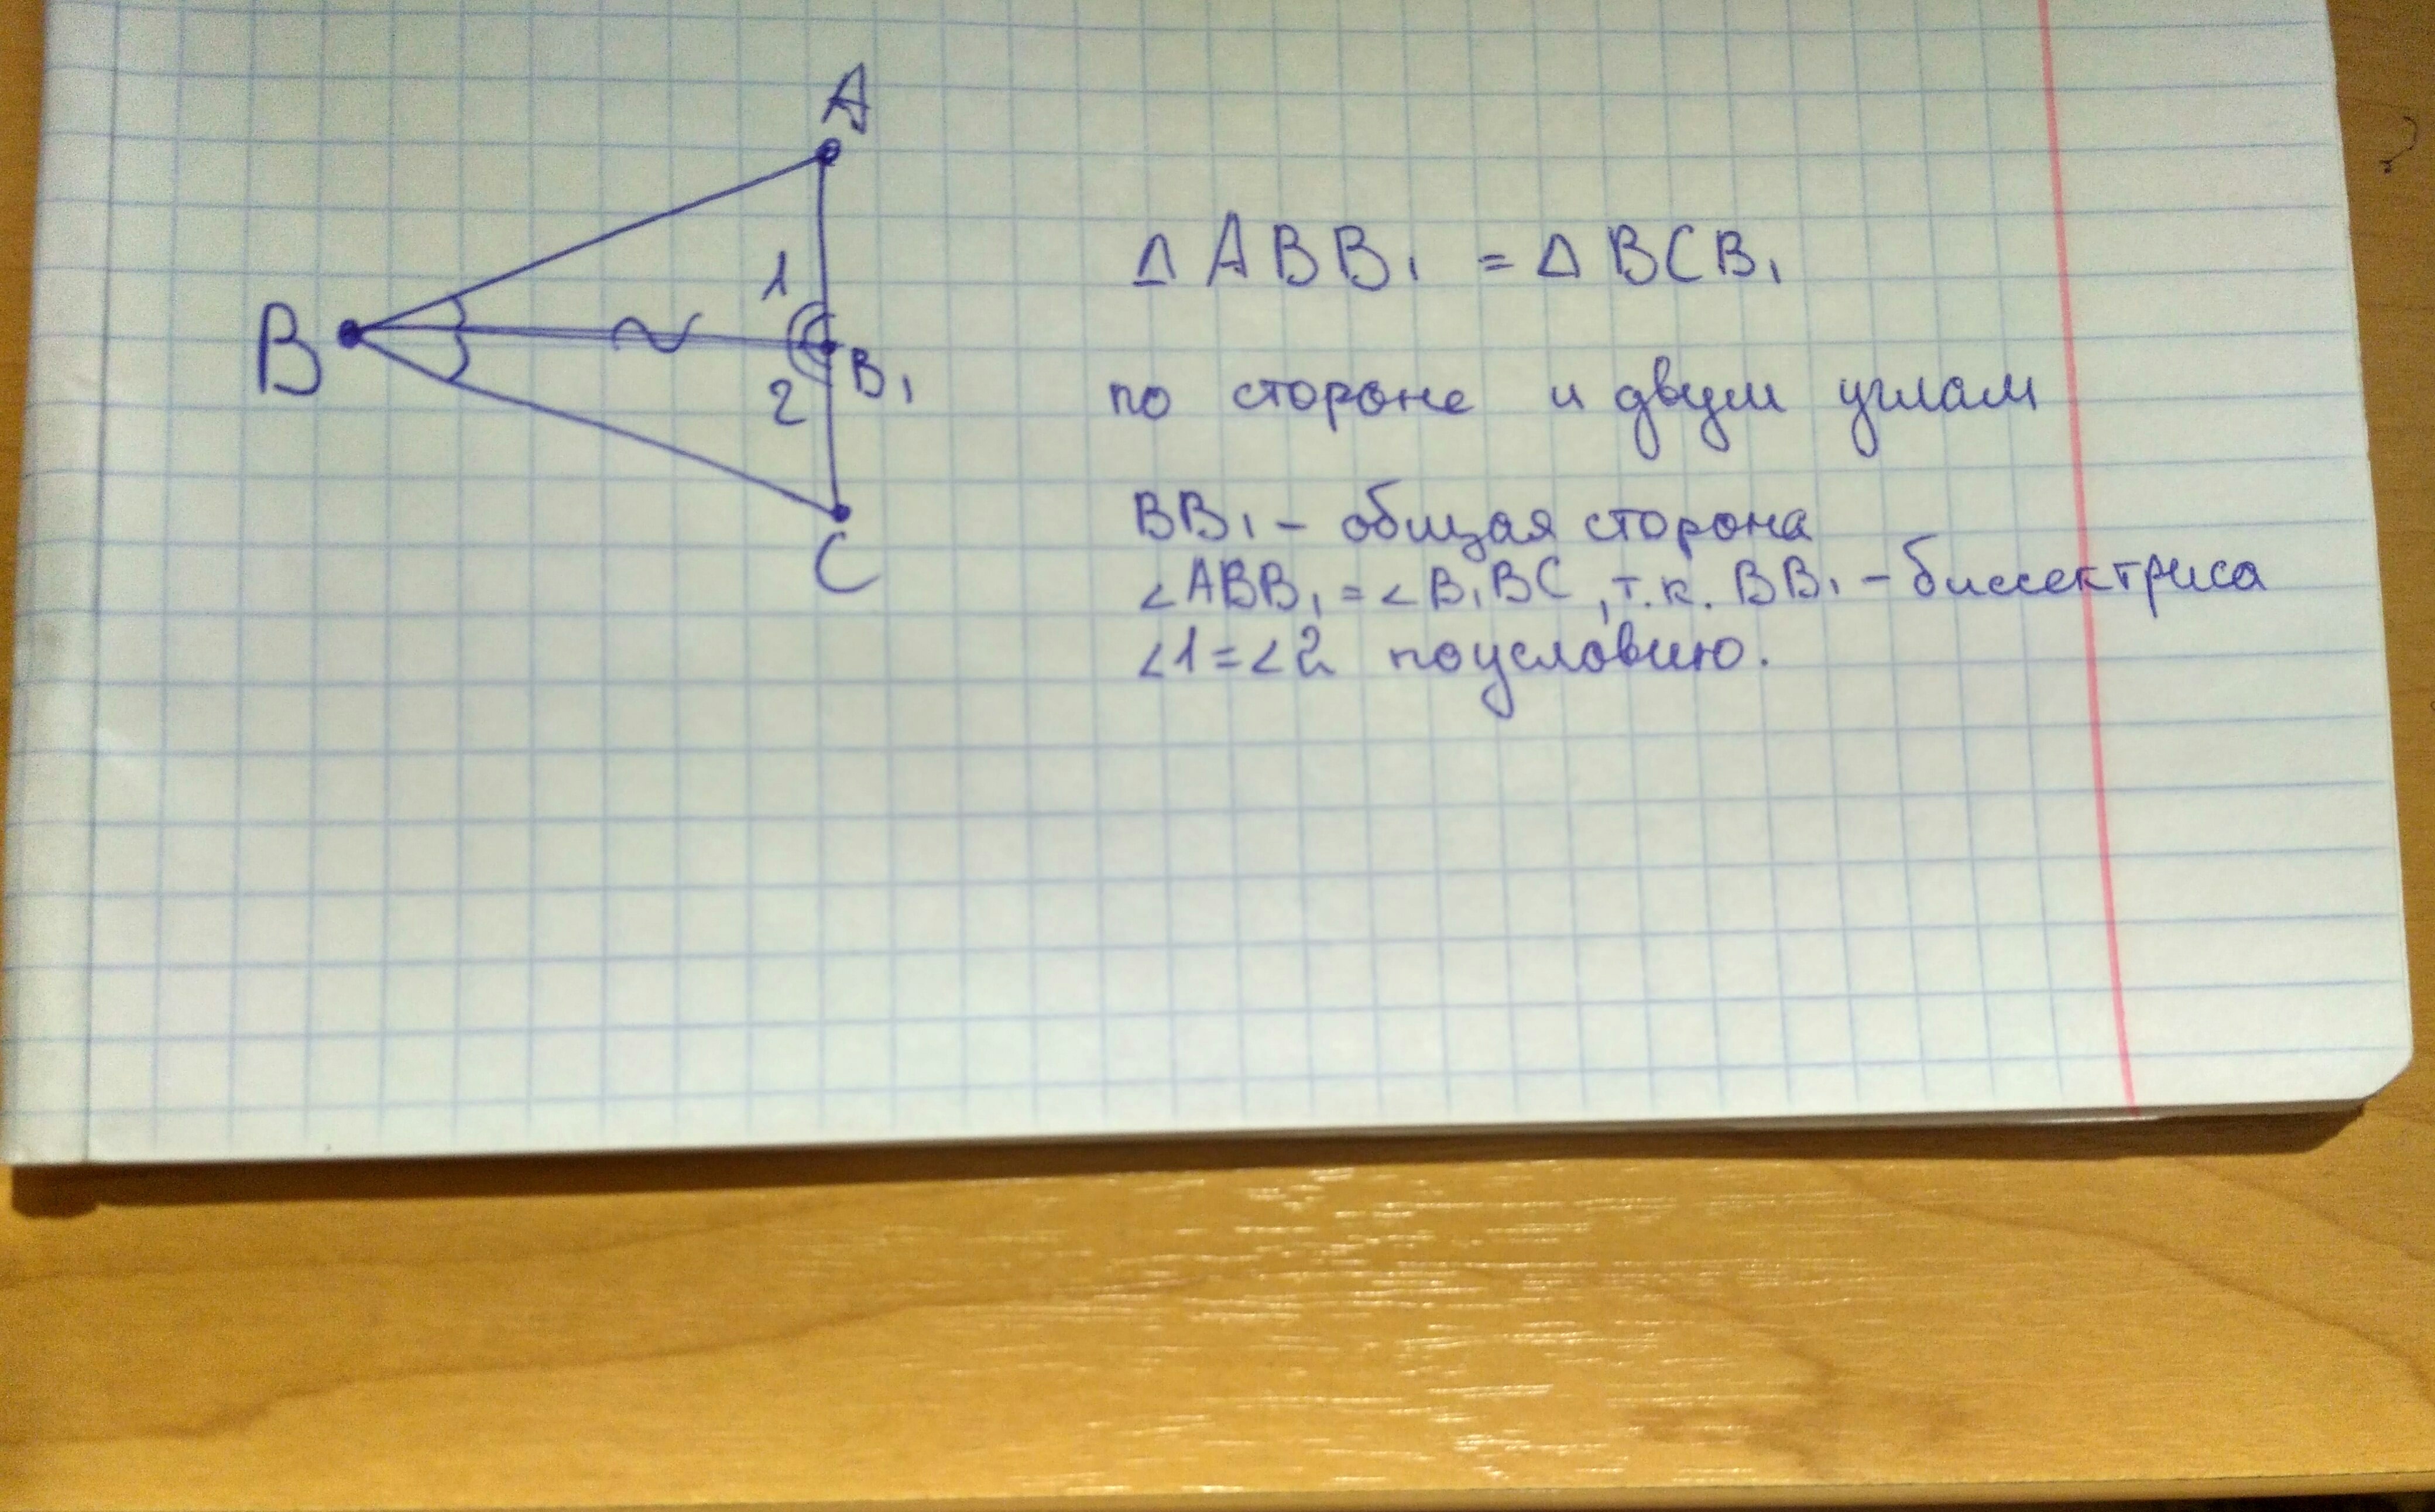 A
1
B
B₁
2
C
△ABB₁ = △BCB₁
по стороне и двум углам
BB₁ – общая сторона
∠ABB₁ = ∠B₁BC, т.к. BB₁ – биссектриса
∠1 = ∠2 поусловию.